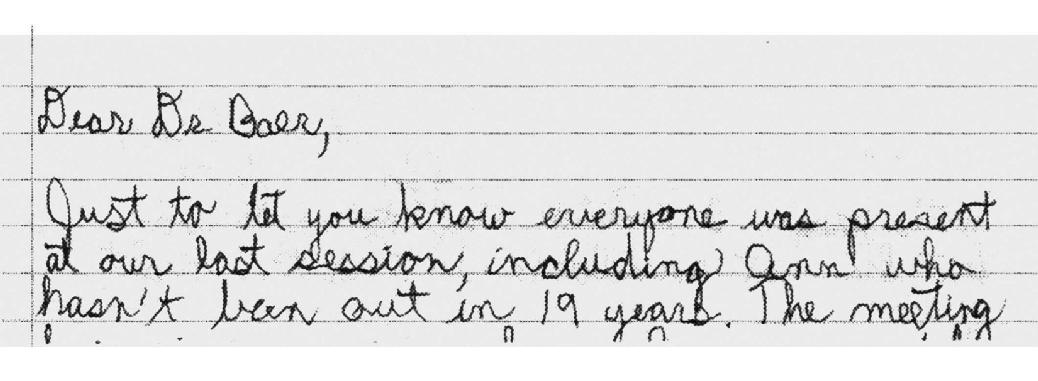 Dear De Baer,
Just to let you know everyone was present
at our last session, including Ann who
hasn't been out in 19 years. The meeting